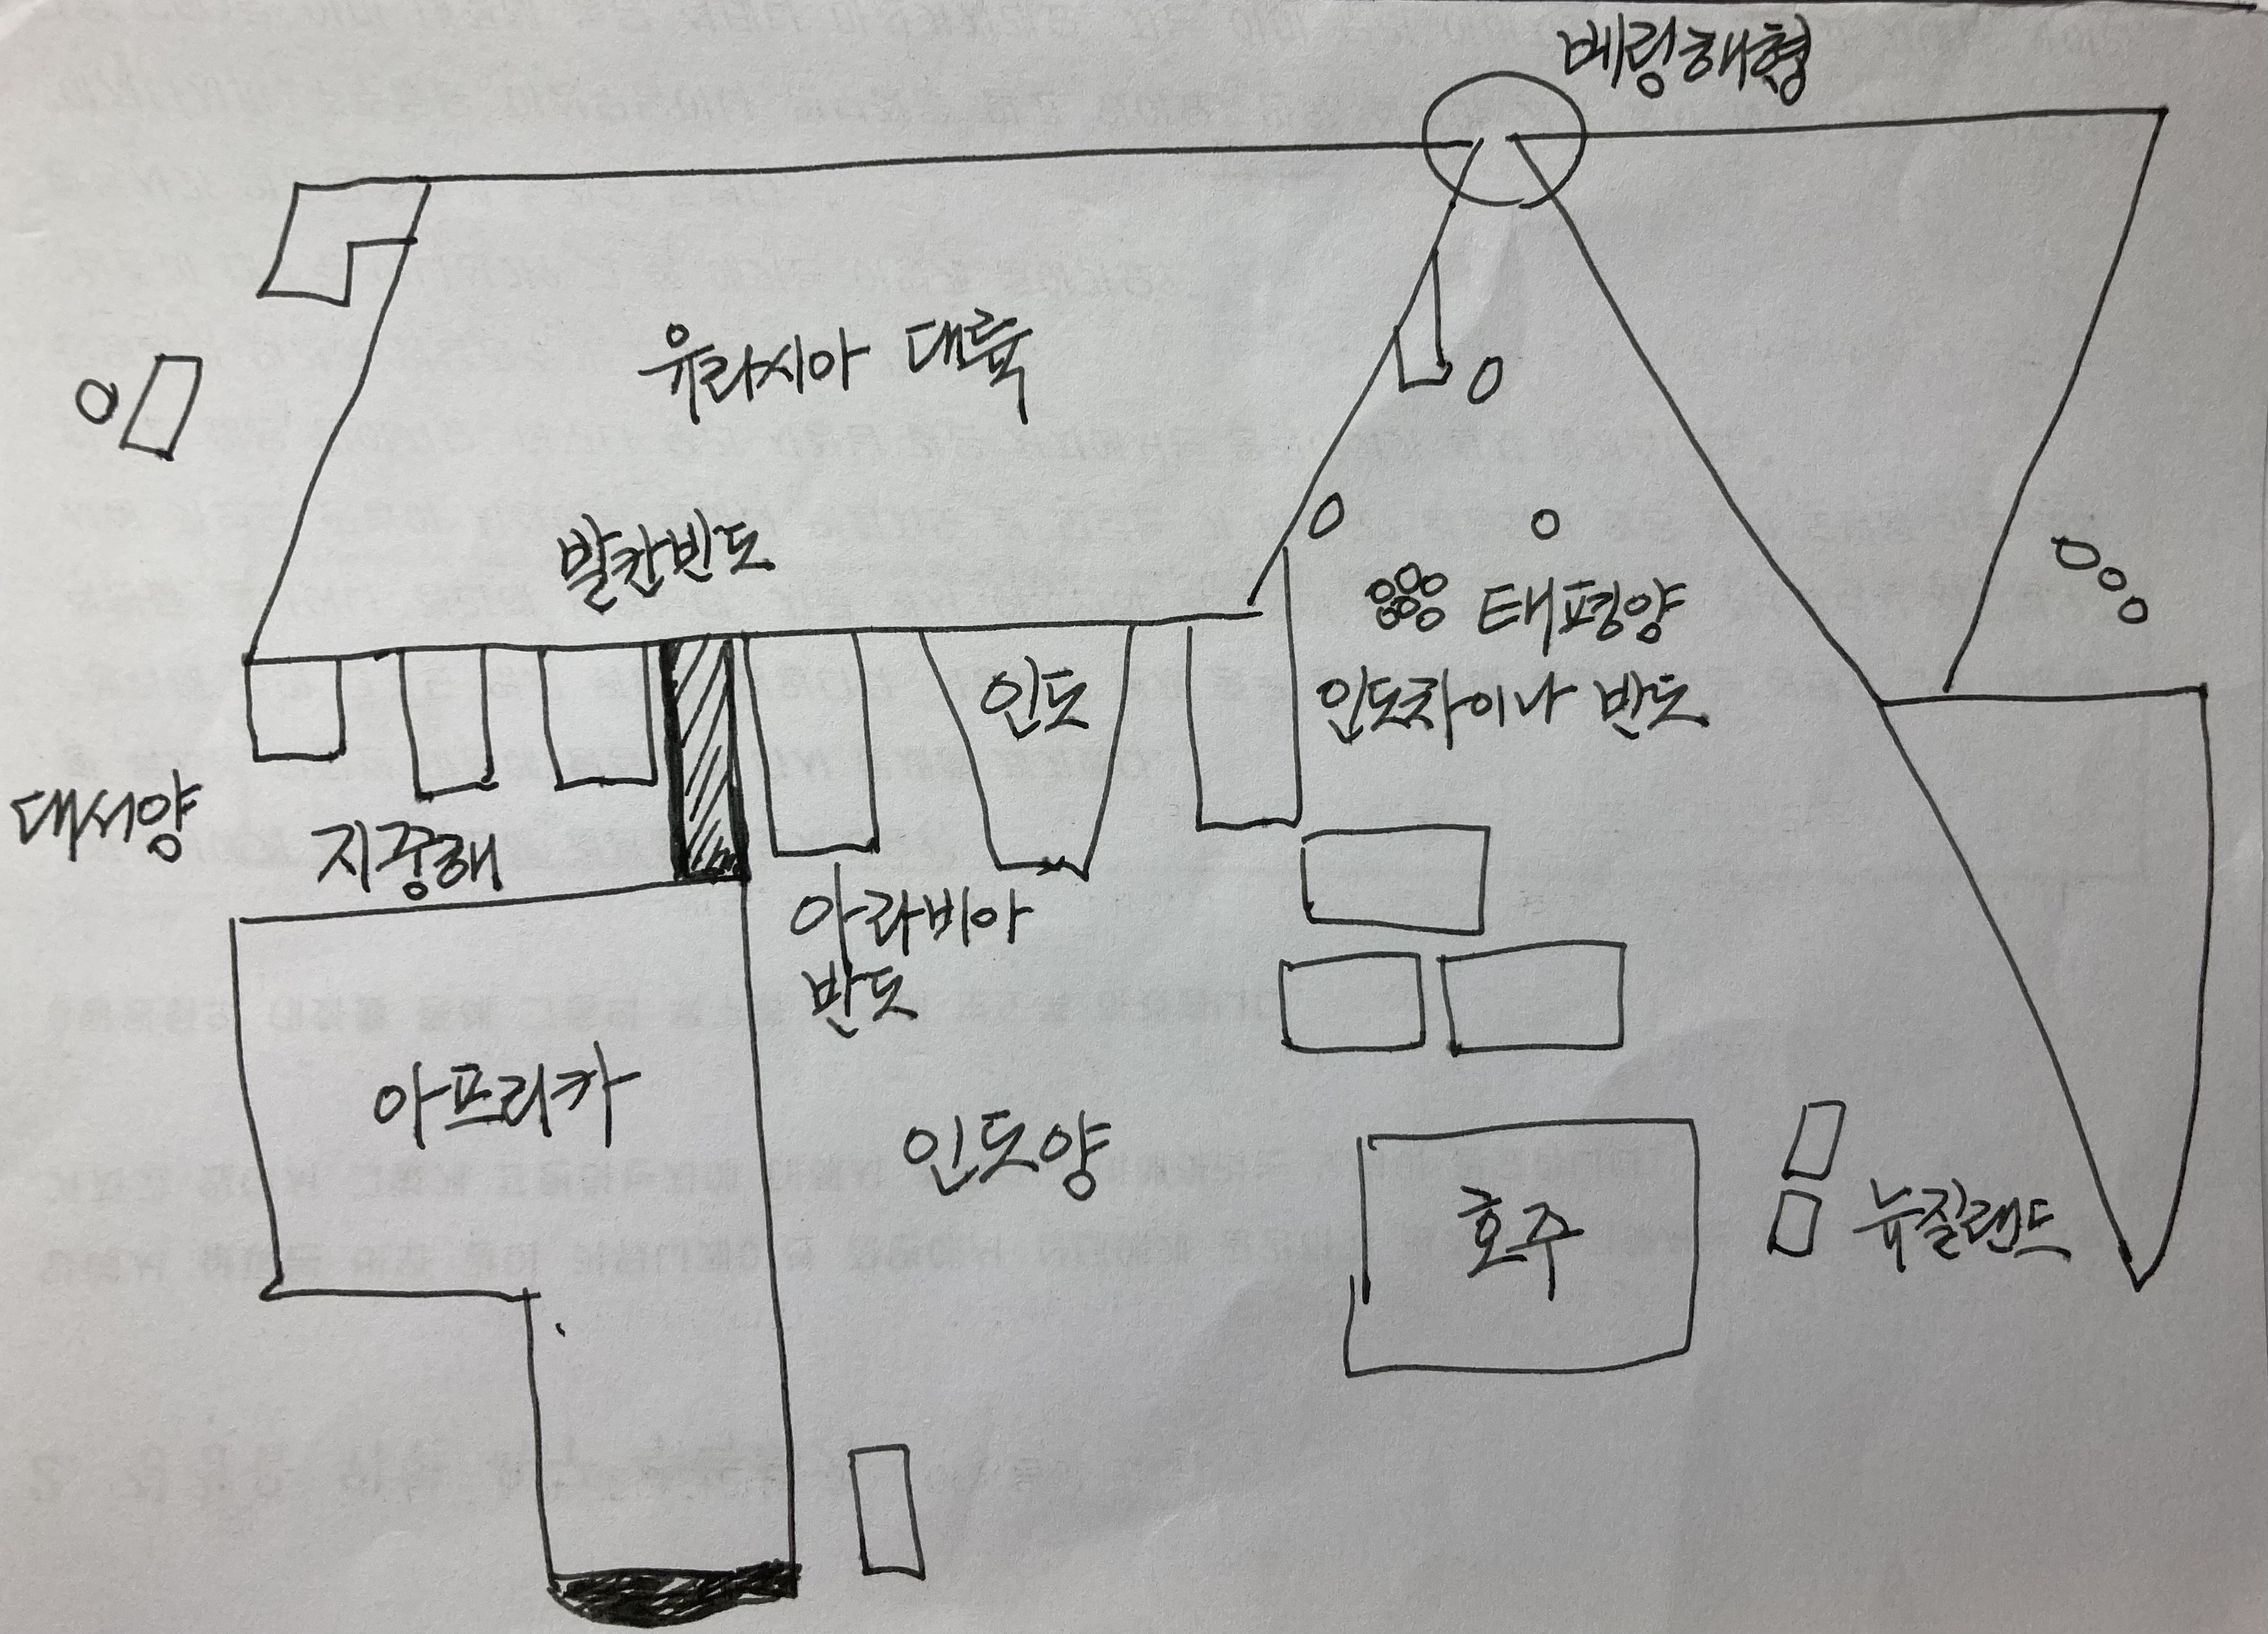 베링해형
유라시아 대륙
발칸반도
인도
태평양
인도차이나 반도
대서양
지중해
아라비아
반도
아프리카
인도양
호주
뉴질랜드